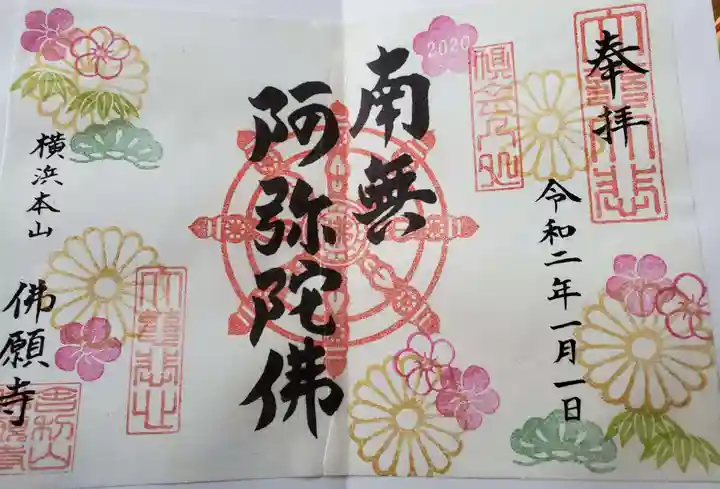 奉拝
令和二年一月一日
2020
南無
阿弥陀佛
横浜本山
佛願寺